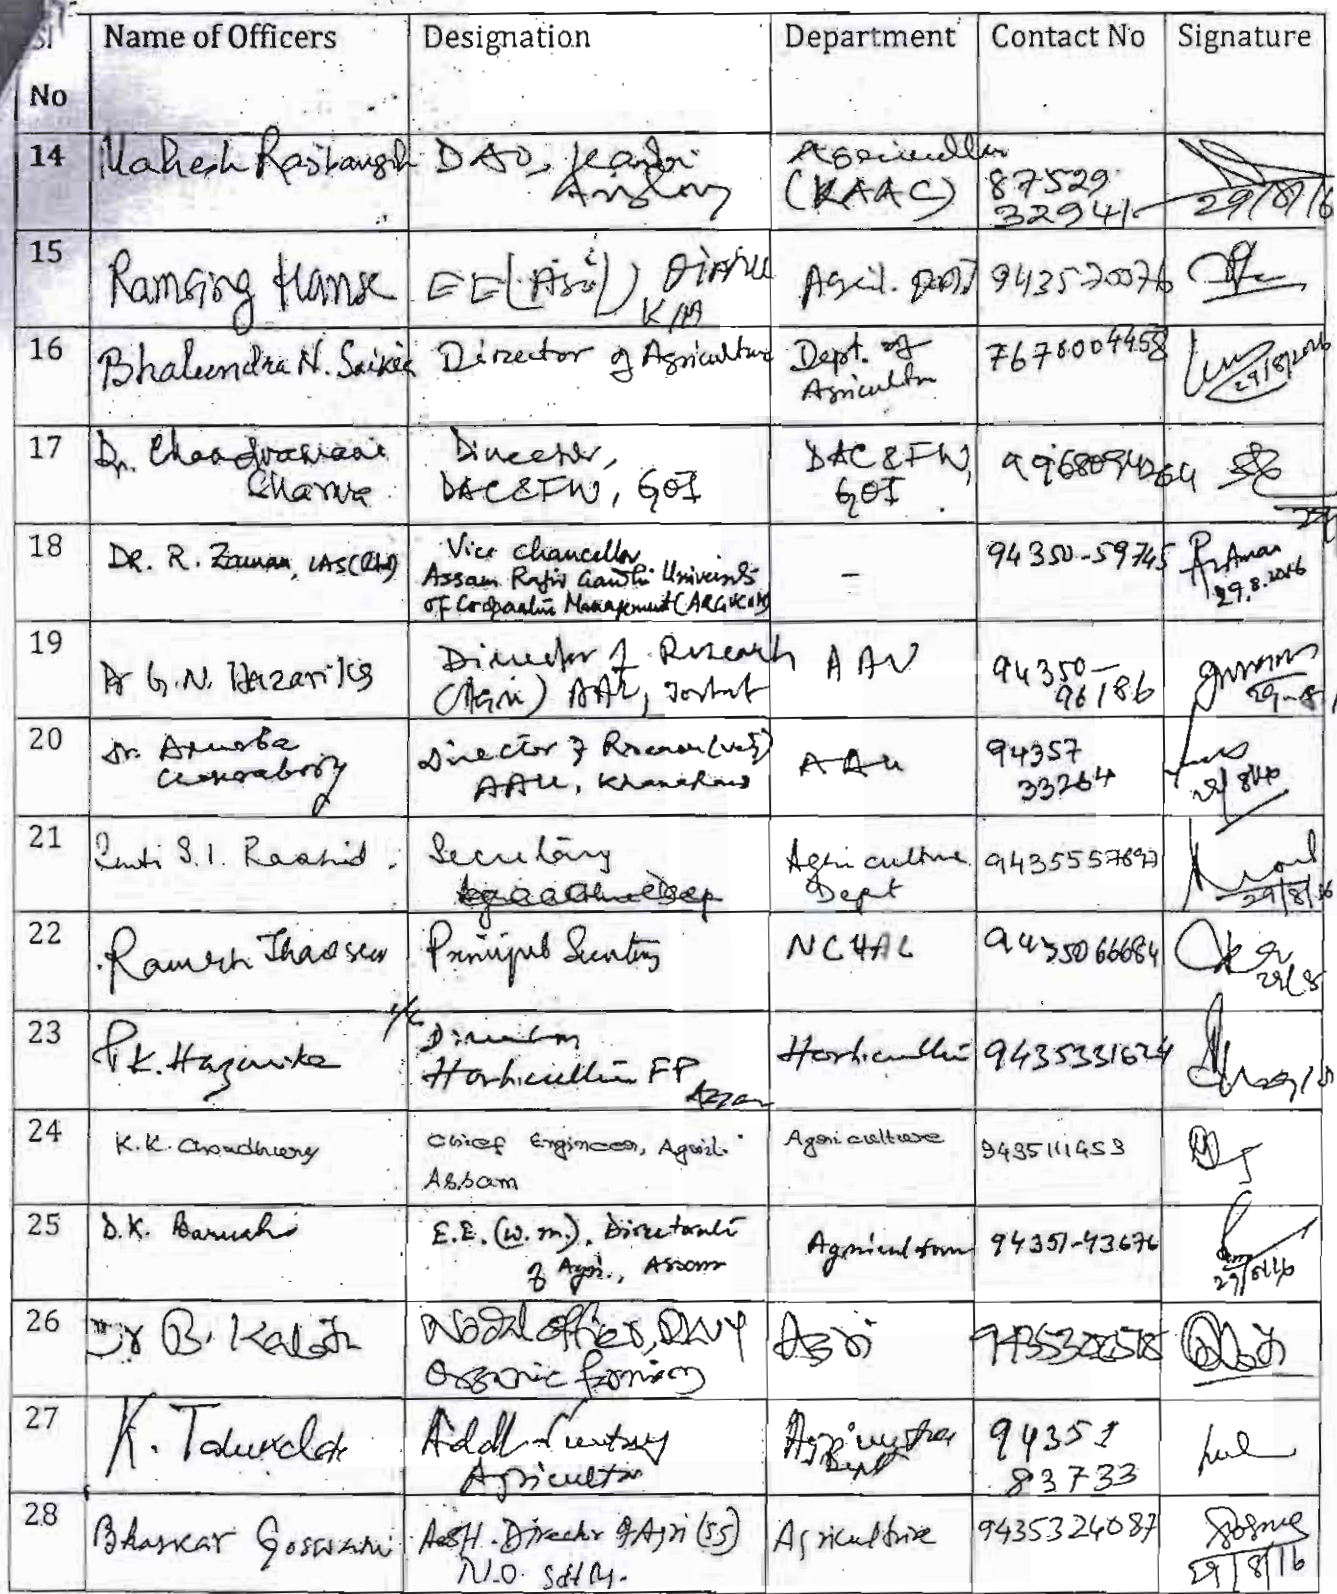 Sl No | Name of Officers | Designation | Department | Contact No | Signature
14 | Mahesh | DAO, Karbi Anglong | Agriculture (KAAC) | 87529 32941 | 29/8/16
15 | Ramsing Hanse | EE(Agri) | Agril. | 9435
16 | N. Saikia | Director of Agriculture | Dept. of Agriculture | 29/8/2016
17 | Dr. | Director, DAC&FW, GOI | DAC&FW, GOI
18 | DR. R. Zaman, IAS(Rtd) | Vice Chancellor Assam Rajiv Gandhi University of Cooperative Management (ARGUCOM) | – | 94350-59745 | 29.8.2016
19 | Dr G.N. Hazarika | Director of Research (Agri) AAU, Jorhat | AAU | 94350– 96186 | 29-8
20 | Dr. Chakraborty | Director of Research (Vety) AAU, Khanapara | AAU | 94357 33264 | 29/8/16
21 | S.I. Rashid. | Secretary | Agriculture Dept | 29/8/16
22 | Ramesh | Principal Secretary | NCHAC | 9435066684 | 29/8
23 | P.K. Hazarika | i/c Director Horticulture FP Assam | Horticulture | 9435331624
24 | K.K. Choudhury | Chief Engineer, Agril. Assam | Agriculture | 9435111453
25 | D.K. Baruah | E.E. (W.M.), Directorate of Agri., Assam | Agriculture | 94351-43676 | 29/8/16
26 | Dr B. Kalita | Nodal officer, Organic farming | Agri
27 | K. | Addl. Secretary Agriculture | Agriculture Dept | 94351 83733
28 | Bhaskar Goswami | Asstt. Director of Agri (SS) N.O. | Agriculture | 9435324087 | 29/8/16